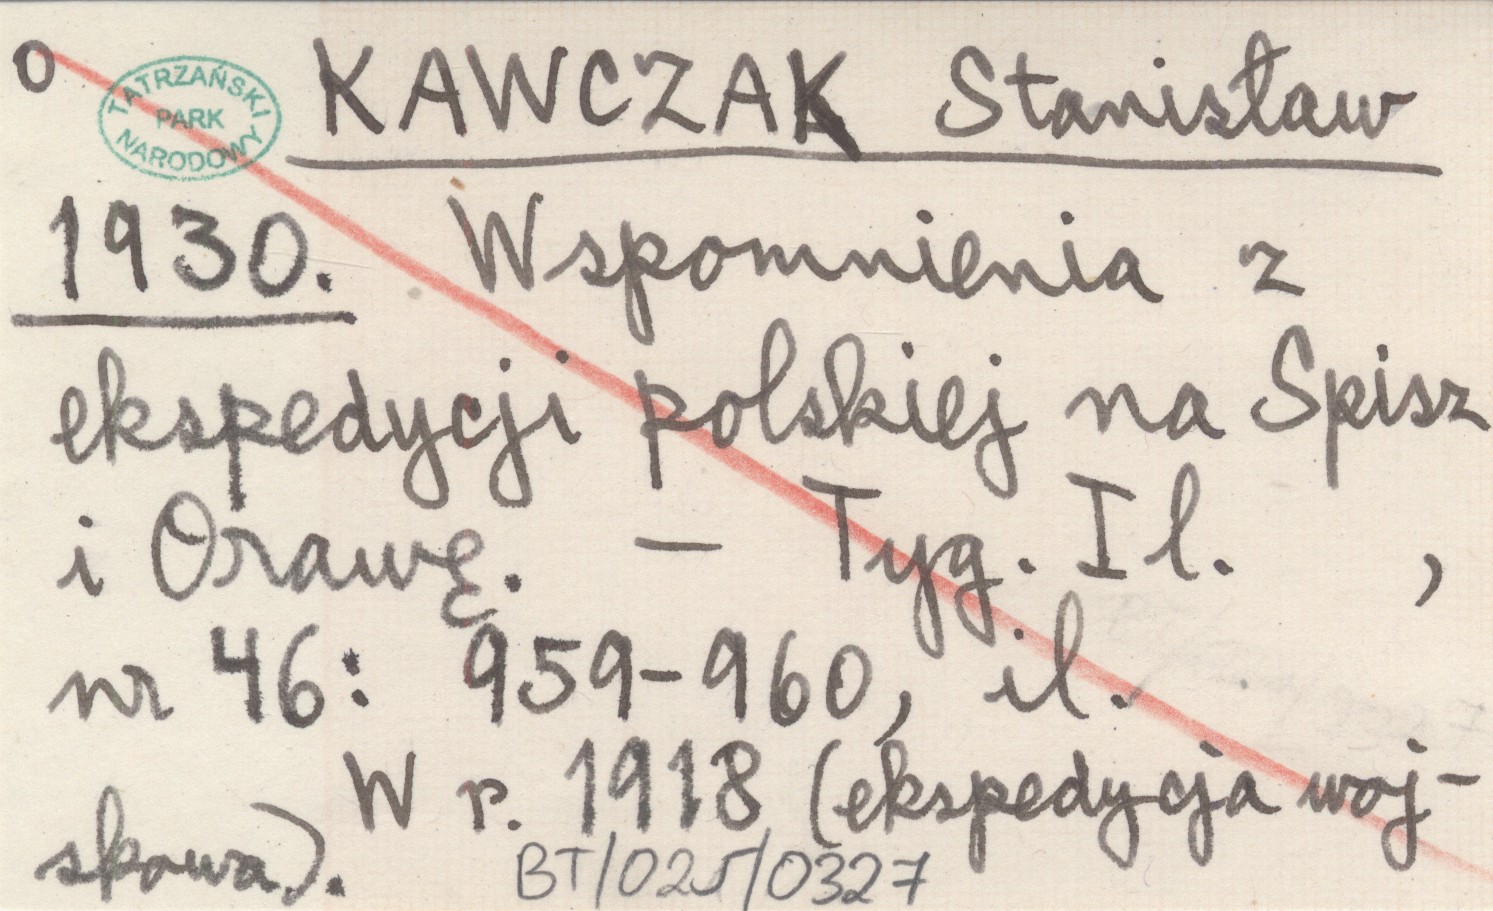 O
TATRZAŃSKI
PARK
NARODOWY
KAWCZAK Stanisław
1930. Wspomnienia z
ekspedycji polskiej na Spisz
i Orawę. — Tyg. Il. ,
nr 46: 959-960, il.
W r. 1918 (ekspedycja woj-
skowa).
BT/025/0327